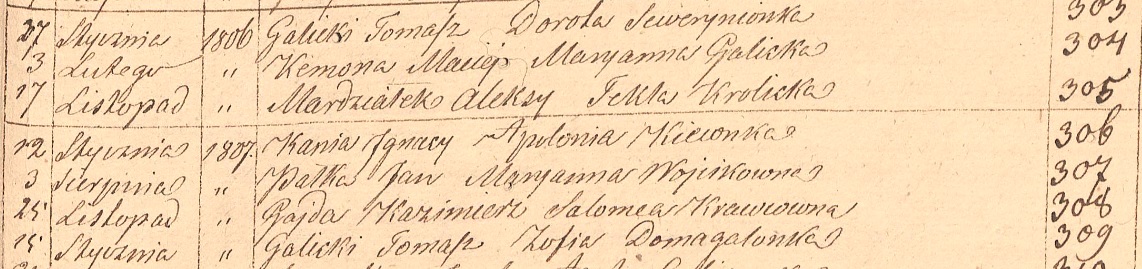 27 Stycznia 1806 Galicki Tomasz Dorota Sewerynionka 303
3 Lutego " Kemona Maciej Maryanna Galicka 304
17 Listopad " Mardziałek Aleksy Tekla Krolicka 305
12 Stycznia 1807. Kania Ignacy Apolonia Kiewnka 306
3 Sierpnia " Pałka Jan Maryanna Wojcikowna 307
25 Listopad " Gajda Kazimierz Salomea Krawcowna 308
15 Stycznia " Galicki Tomasz Zofia Domagalonka 309